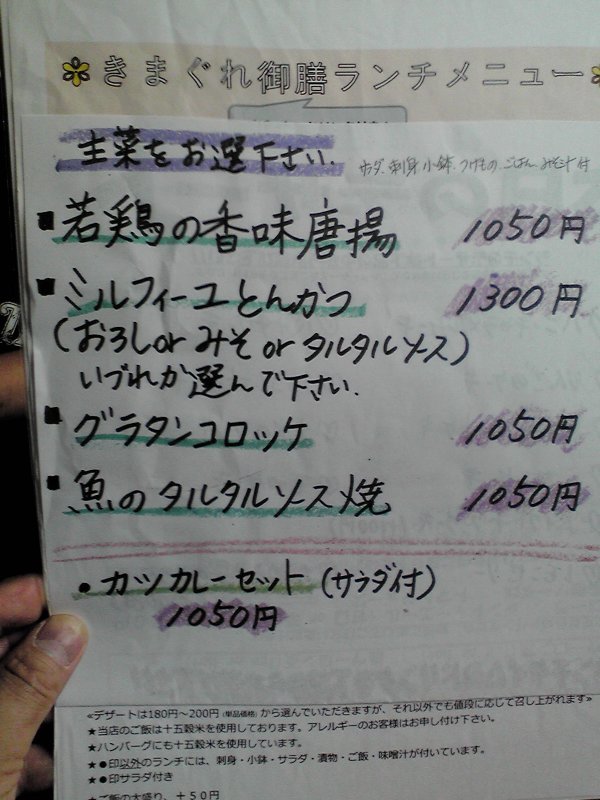 きまぐれ御膳ランチメニュー
主菜をお選下さい.
サラダ.刺身.小鉢.つけもの.ごはん.みそ汁付
■若鶏の香味唐揚 1050円
■ミルフィーユとんかつ 1300円
(おろしor みそ or タルタルソース)
いづれか選んで下さい.
■グラタンコロッケ 1050円
■魚のタルタルソース焼 1050円
●カツカレーセット(サラダ付)
1050円
≪デザートは180円～200円(単品価格)から選んでいただきますが、それ以外でも値段に応じて召し上がれます≫
★当店のご飯は十五穀米を使用しております。アレルギーのお客様はお申し付け下さい。
★ハンバーグにも十五穀米を使用しています。
★●印以外のランチには、刺身・小鉢・サラダ・漬物・ご飯・味噌汁が付いています。
★●印サラダ付き
★ご飯の大盛り、＋50円